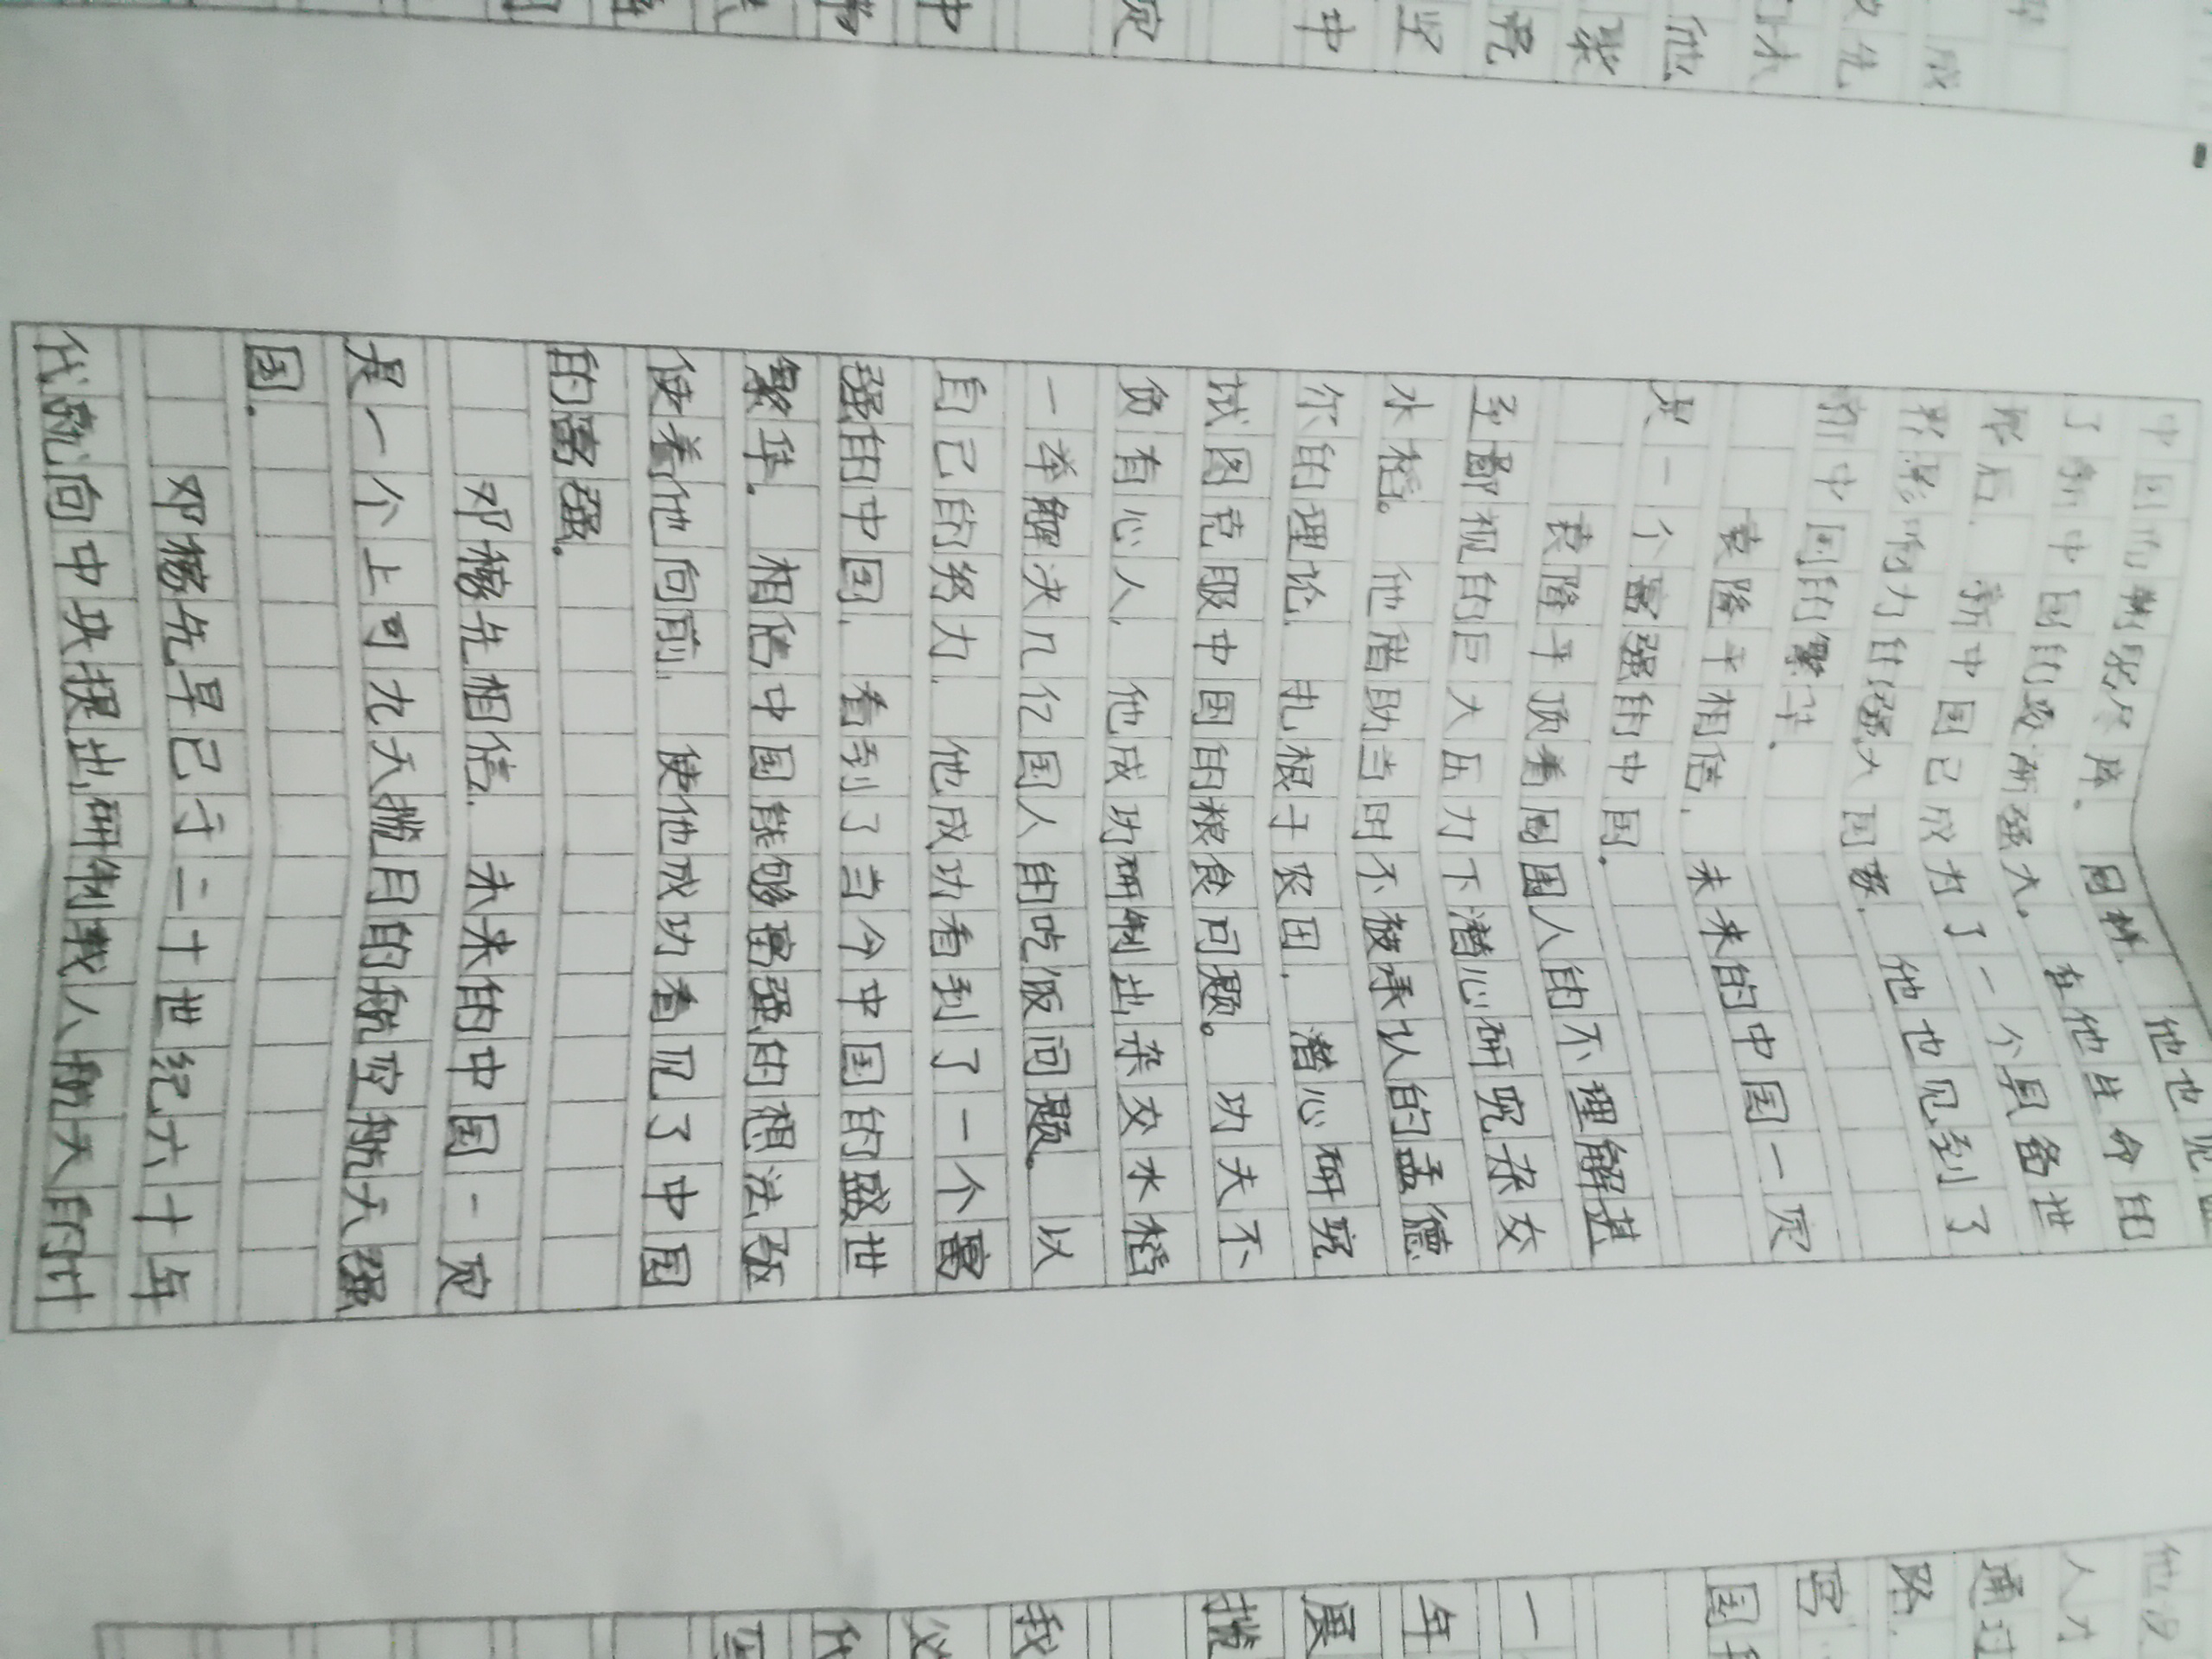 中国而鞠躬尽瘁。同样,他也见证
了新中国的逐渐强大。在他生命的
最后,新中国已成为了一个具备世
界影响力的强大国家,他也见到了
新中国的繁华。
袁隆平相信,未来的中国一定
是一个富强的中国。
袁隆平顶着国人的不理解甚
至鄙视的巨大压力下潜心研究杂交
水稻。他借助当时不被承认的孟德
尔的理论,扎根于农田,潜心研究
试图克服中国的粮食问题。功夫不
负有心人,他成功研制出杂交水稻
一举解决几亿国人的吃饭问题。以
自己的努力,他成功看到了一个富
强的中国,看到了当今中国的盛世
繁华。相信中国能够富强的想法驱
使着他向前,使他成功看见了中国
的富强。
邓稼先相信,未来的中国一定
是一个上可九天揽月的航空航天强
国。
邓稼先早已于二十世纪六十年
代就向中央提出研制载人航天的计